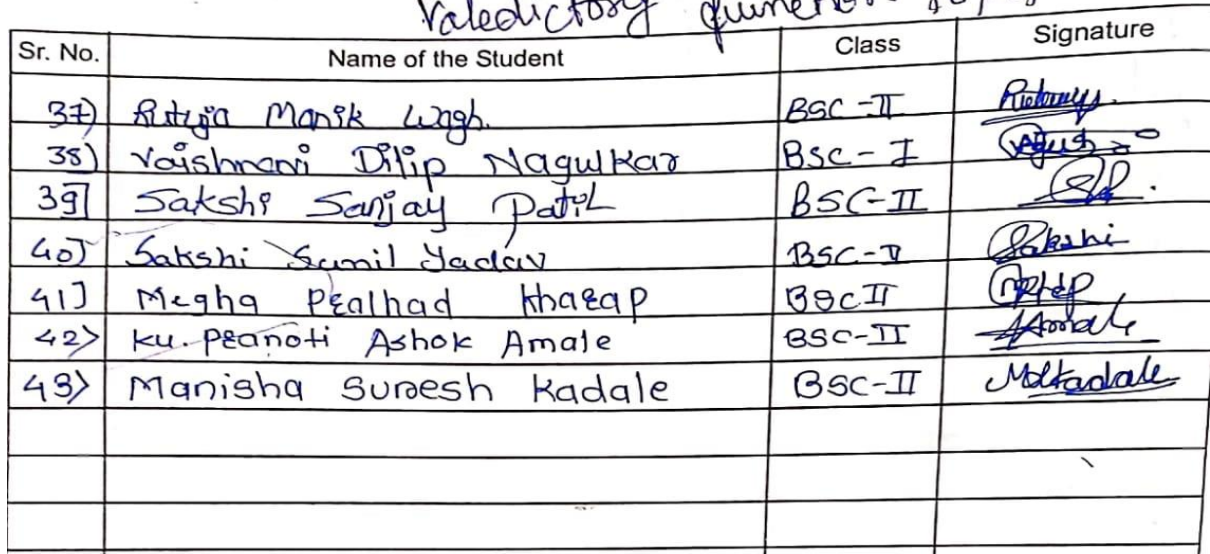 Valedictory
Sr. No. Name of the Student Class Signature
37) Rutuja Manik Wagh. BSC-II
38) Vaishnavi Dilip Nagulkar BSC-I
39] Sakshi Sanjay Patil BSC-II
40] Sakshi Sunil Yadav BSC-II Sakshi
41] Megha Pralhad Kharap BSC II
42) Ku. Pranoti Ashok Amale BSC-II Amale
43) Manisha Suresh Kadale BSC-II MSKadale